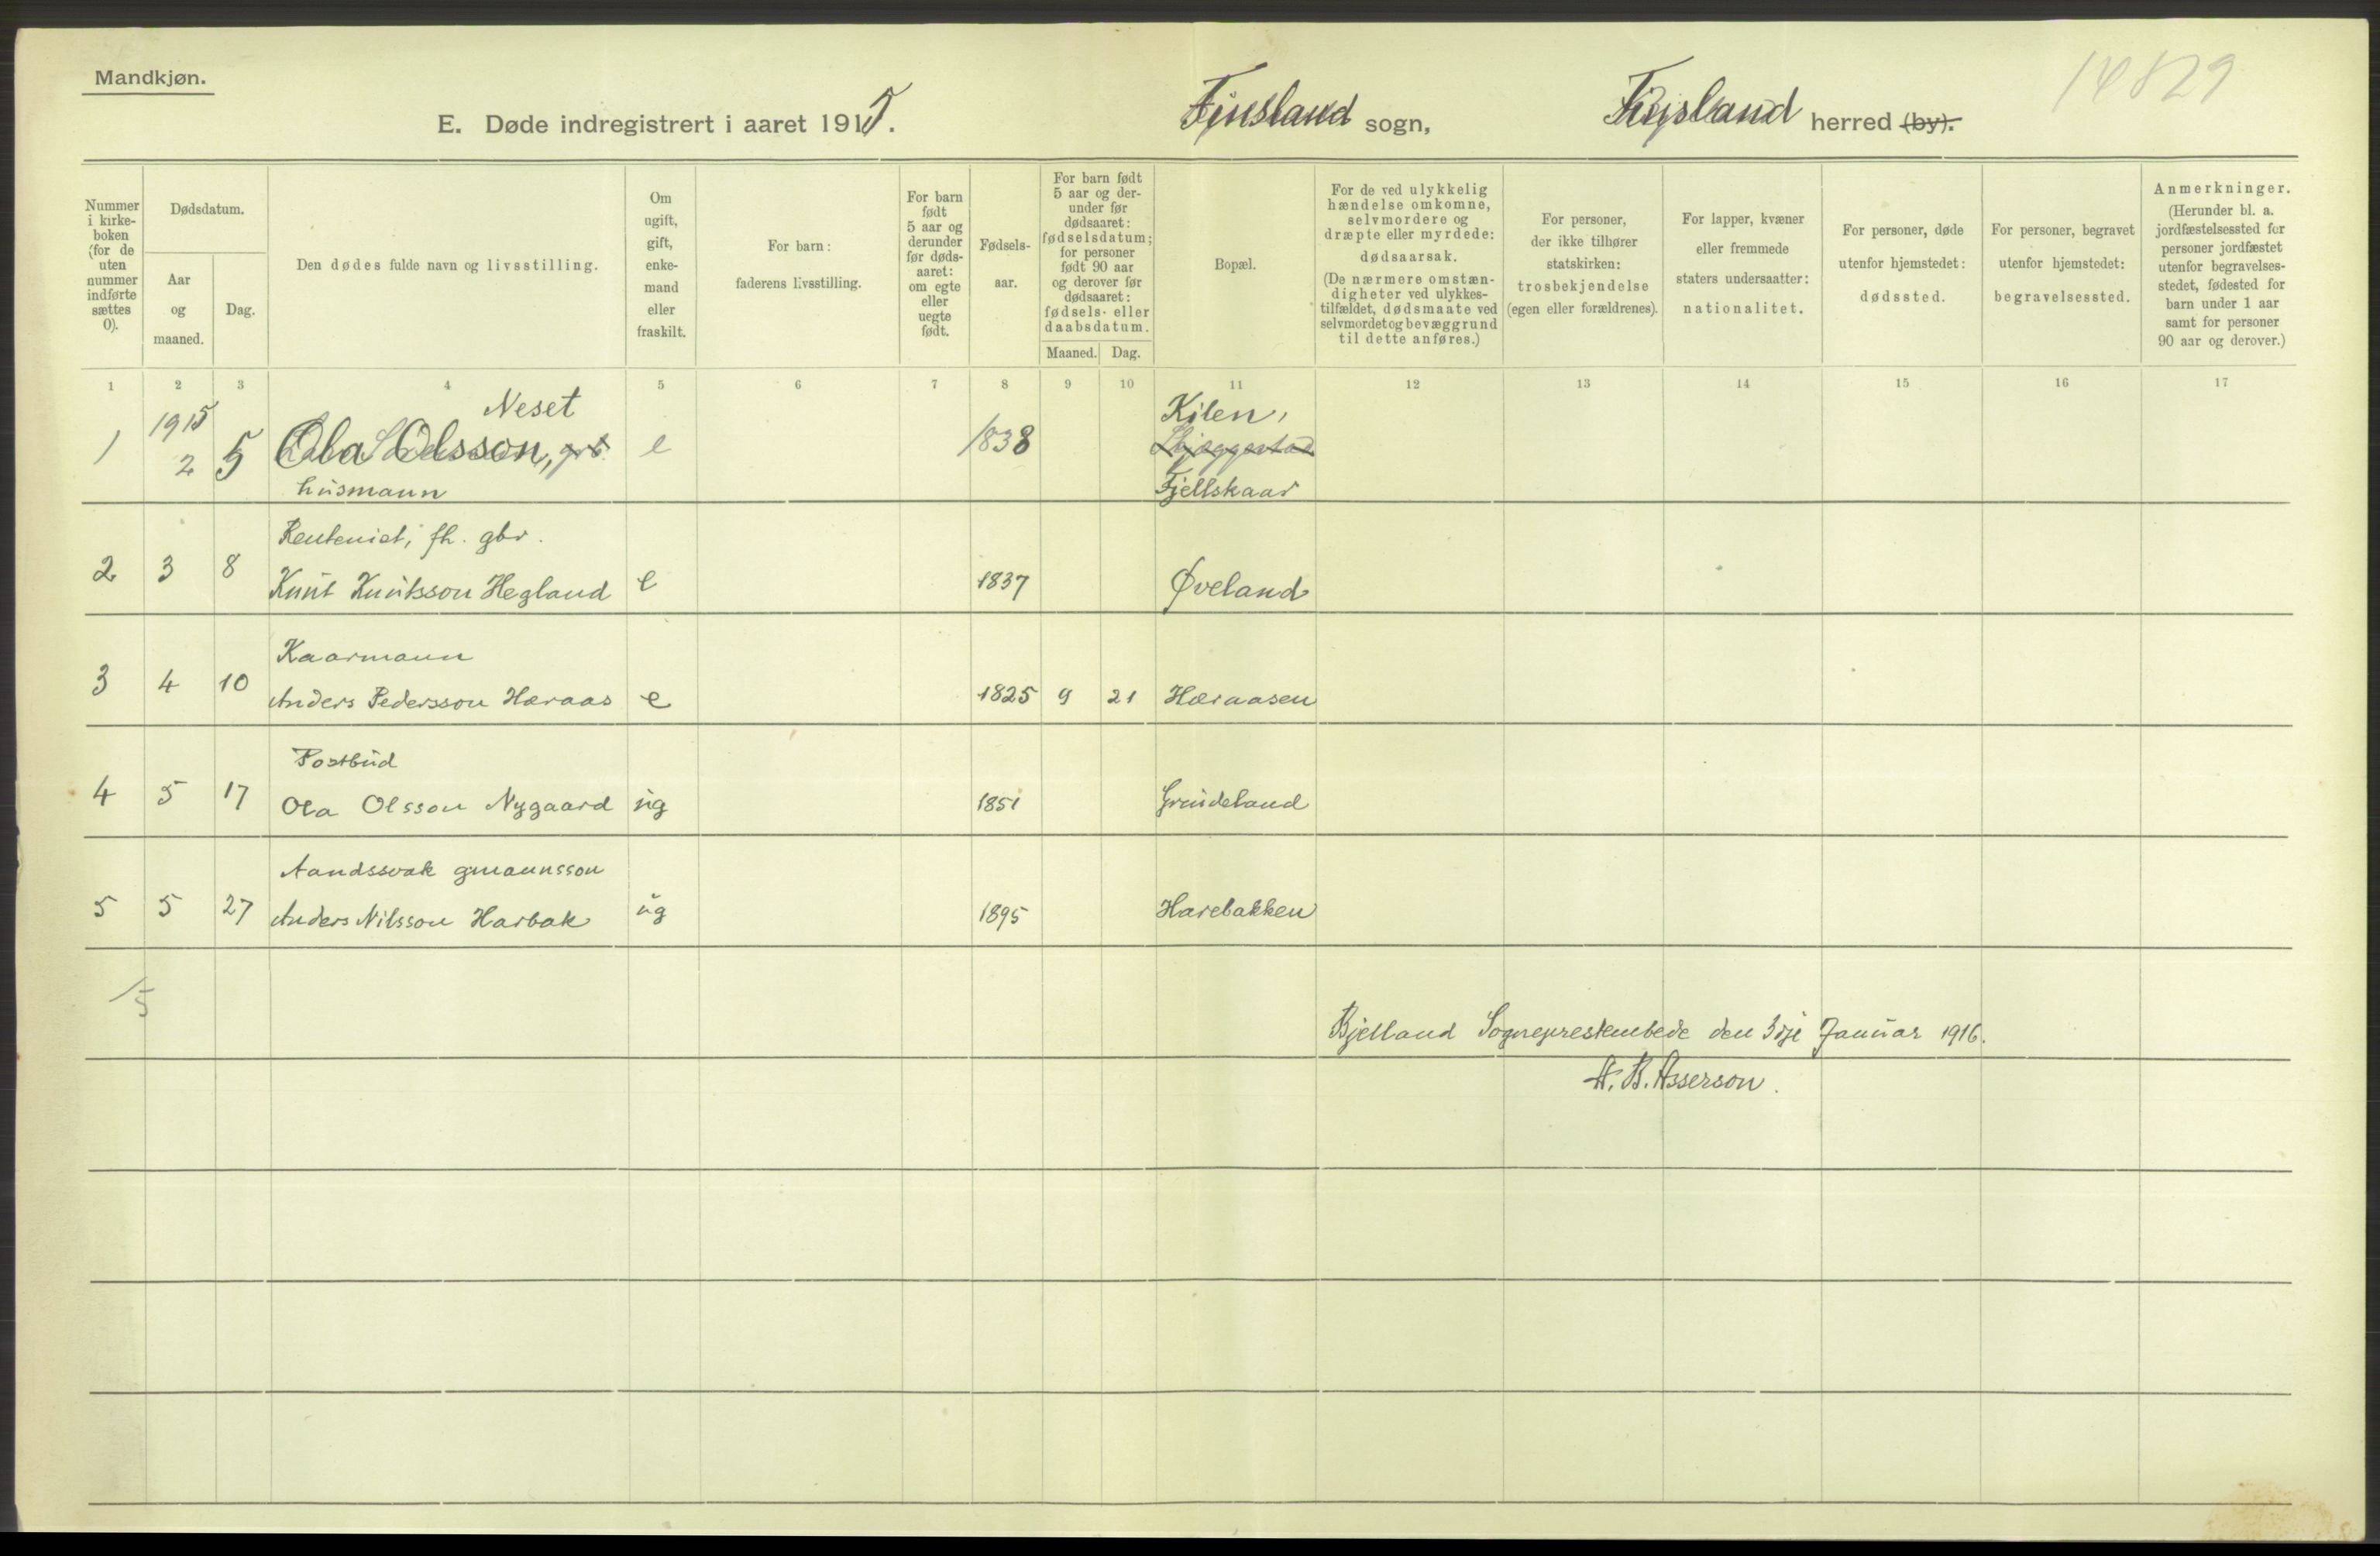 Mandkjøn.
14829
E. Døde indregistrert i aaret 1915. Finsland sogn, herred (by).
Nummer i kirke-boken (for de uten nummer indførte sættes 0).
Dødsdatum.
Aar og maaned.
Dag.
Den dødes fulde navn og livsstilling.
Om ugift, gift, enke-mand eller fraskilt.
For barn: faderens livsstilling.
For barn født 5 aar og derunder før døds-aaret: om egte eller uegte født.
Fødsels-aar.
For barn født 5 aar og der-under før dødsaaret: fødselsdatum; for personer født 90 aar og derover før dødsaaret: fødsels- eller daabsdatum.
Maaned. Dag.
Bopæl.
For de ved ulykkelig hændelse omkomne, selvmordere og dræpte eller myrdede: dødsaarsak.
(De nærmere omstæn-digheter ved ulykkes-tilfældet, dødsmaate ved selvmordet og bevæggrund til dette anføres.)
For personer, der ikke tilhører statskirken: trosbekjendelse (egen eller forældrenes).
For lapper, kvæner eller fremmede staters undersaatter: nationalitet.
For personer, døde utenfor hjemstedet: dødssted.
For personer, begravet utenfor hjemstedet: begravelsessted.
Anmerkninger.
(Herunder bl. a. jordfæstelsessted for personer jordfæstet utenfor begravelses-stedet, fødested for barn under 1 aar samt for personer 90 aar og derover.)
1 2 3 4 5 6 7 8 9 10 11 12 13 14 15 16 17
Neset Kilen,
1915
1 2 5 Ola Olsson, e 1838
husmann Fjellskaar
Rentenist, fh. gbr.
2 3 8 Knut Knutsson Hegland e 1837 Øveland
Kaarmann
3 4 10 Anders Pedersson Høraas e 1825 9 21 Høraasen
Postbud
4 5 17 Ola Olsson Nygaard ug 1851 Grundeland
Aandssvak gmannsson
5 5 27 Anders Nilsson Harbak ug 1895 Harebakken
/5
Bjelland Sogneprestembede den 3dje Januar 1916.
A. B. Asserson.